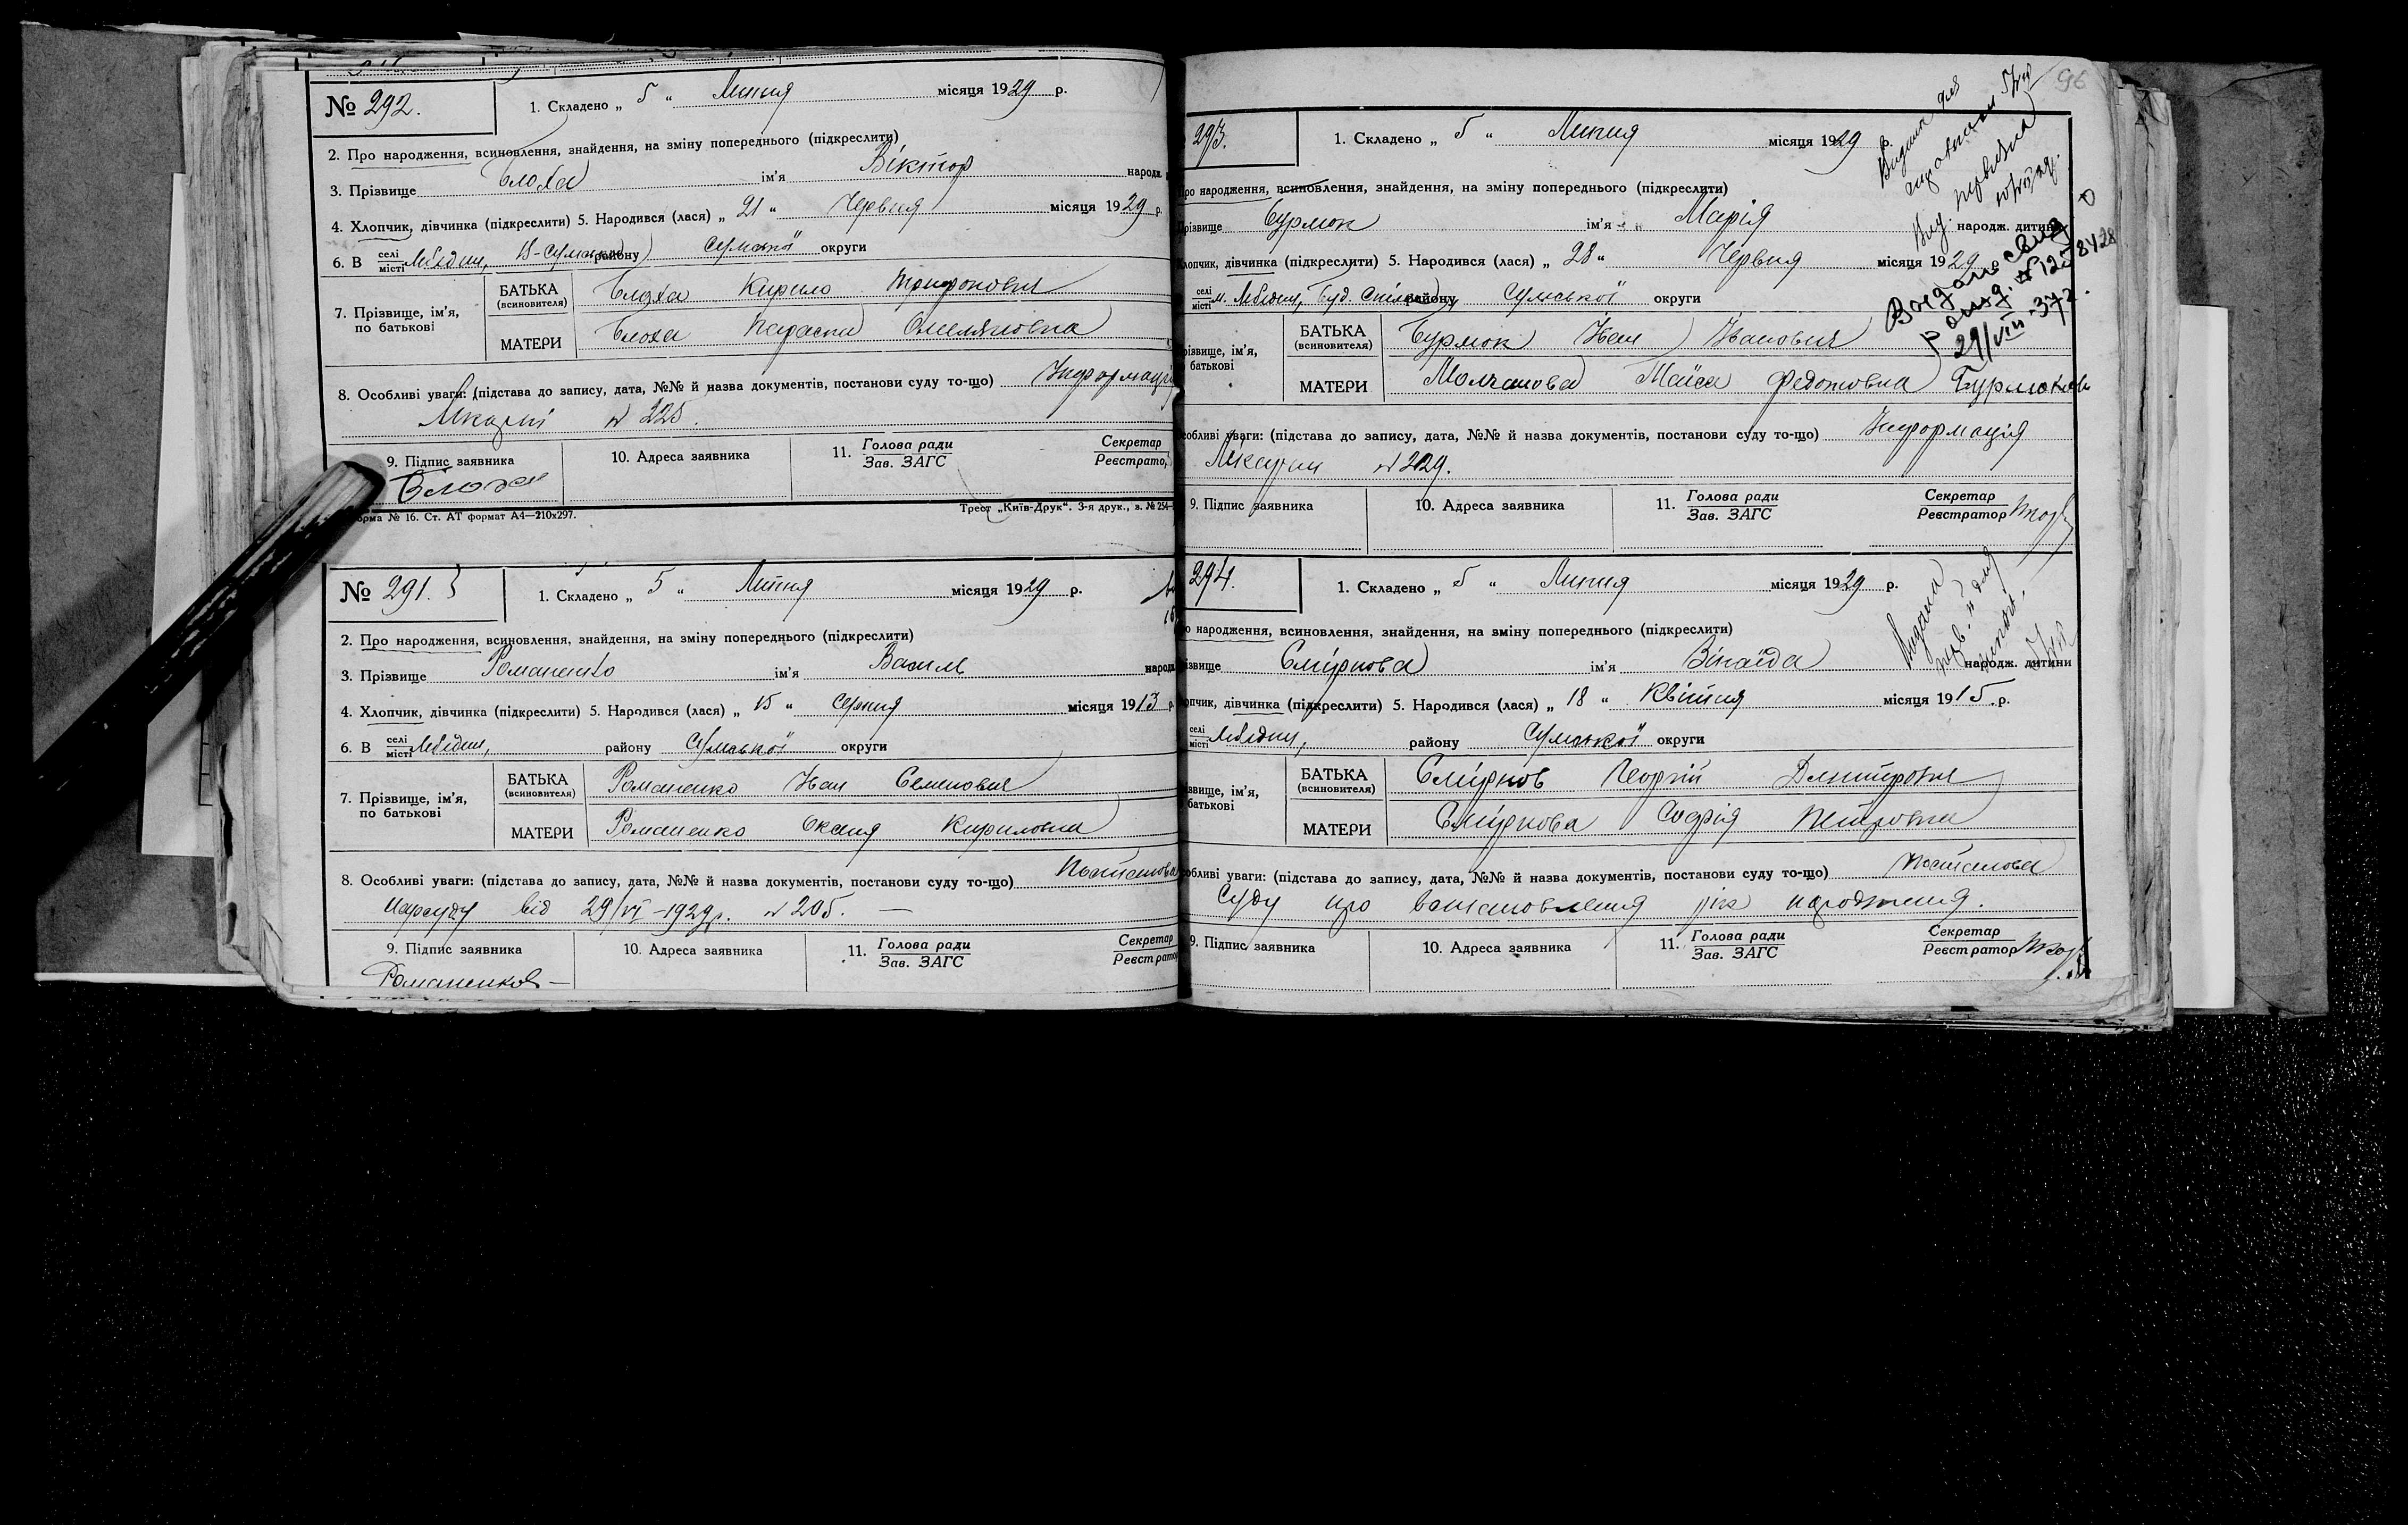 № 292. 1. Складено „ 5 “ Липня місяця 1929 р.
2. Про народження, всиновлення, знайдення, на зміну попереднього (підкреслити)
3. Прізвище Блоха ім'я Віктор народж.
4. Хлопчик, дівчинка (підкреслити) 5. Народився (лася) „ 21 “ Червня місяця 1929 р.
6. В селі місті Лебедин, району Сумської округи
7. Прізвище, ім'я, по батькові
БАТЬКА (всиновителя) Блоха Кирило Трифонович
МАТЕРИ Блоха Параска Омеляновна
8. Особливі уваги: (підстава до запису, дата, №№ й назва документів, постанови суду то-що) Інформація
Лікарні № 225.
9. Підпис заявника 10. Адреса заявника 11. Голова ради Зав. ЗАГС Секретар Реєстратор
Блоха
форма № 16. Ст. АТ формат А4—210x297. Трест „Київ-Друк“. 3-я друк., з. № 254-
№ 291. 1. Складено „ 5 “ Липня місяця 1929 р.
2. Про народження, всиновлення, знайдення, на зміну попереднього (підкреслити)
3. Прізвище Романенко ім'я Василь народж
4. Хлопчик, дівчинка (підкреслити) 5. Народився (лася) „ 15 “ Серпня місяця 1913 р.
6. В селі місті Лебедин, району Сумської округи
7. Прізвище, ім'я, по батькові
БАТЬКА (всиновителя) Романенко Іван Семенович
МАТЕРИ Романенко Оксана Кириловна
8. Особливі уваги: (підстава до запису, дата, №№ й назва документів, постанови суду то-що) Постанова
Нарсуду від 29/VI-1929р. № 205. —
9. Підпис заявника 10. Адреса заявника 11. Голова ради Зав. ЗАГС Секретар Реєстратор
Романенков
96
293. 1. Складено „ 5 “ Липня місяця 1929 р.
Про народження, всиновлення, знайдення, на зміну попереднього (підкреслити)
Прізвище Бурмок ім'я Марія народж. дитини
Хлопчик, дівчинка (підкреслити) 5. Народився (лася) „ 28 “ Червня місяця 1929
селі місті м. Лебедин, Буд. району Сумської округи
Прізвище, ім'я, батькові
БАТЬКА (всиновителя) Бурмок Іван Іванович
МАТЕРИ Молчанова Таїса Федотовна Бурмокова
Особливі уваги: (підстава до запису, дата, №№ й назва документів, постанови суду то-що) Інформація
Лікарни № 229.
9. Підпис заявника 10. Адреса заявника 11. Голова ради Зав. ЗАГС Секретар Реєстратор
29/VIII-37р.
294. 1. Складено „ 5 “ Липня місяця 1929 р.
Про народження, всиновлення, знайдення, на зміну попереднього (підкреслити)
Прізвище Смірнова ім'я Зінаїда народж. дитини
Хлопчик, дівчинка (підкреслити) 5. Народився (лася) „ 18 “ Квітня місяця 1915 р.
селі місті Лебедин, району Сумської округи
Прізвище, ім'я, батькові
БАТЬКА (всиновителя) Смірнов Георгій Дмитрович
МАТЕРИ Смірнова Софія Петровна
Особливі уваги: (підстава до запису, дата, №№ й назва документів, постанови суду то-що) Постанова
Суду про встановлення рік народження.
9. Підпис заявника 10. Адреса заявника 11. Голова ради Зав. ЗАГС Секретар Реєстратор